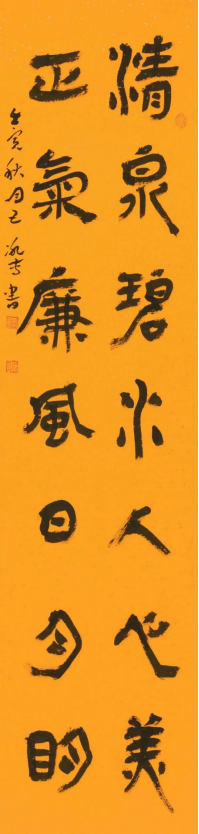 清泉碧水人心美
正氣廉風日月明
壬寅秋月書